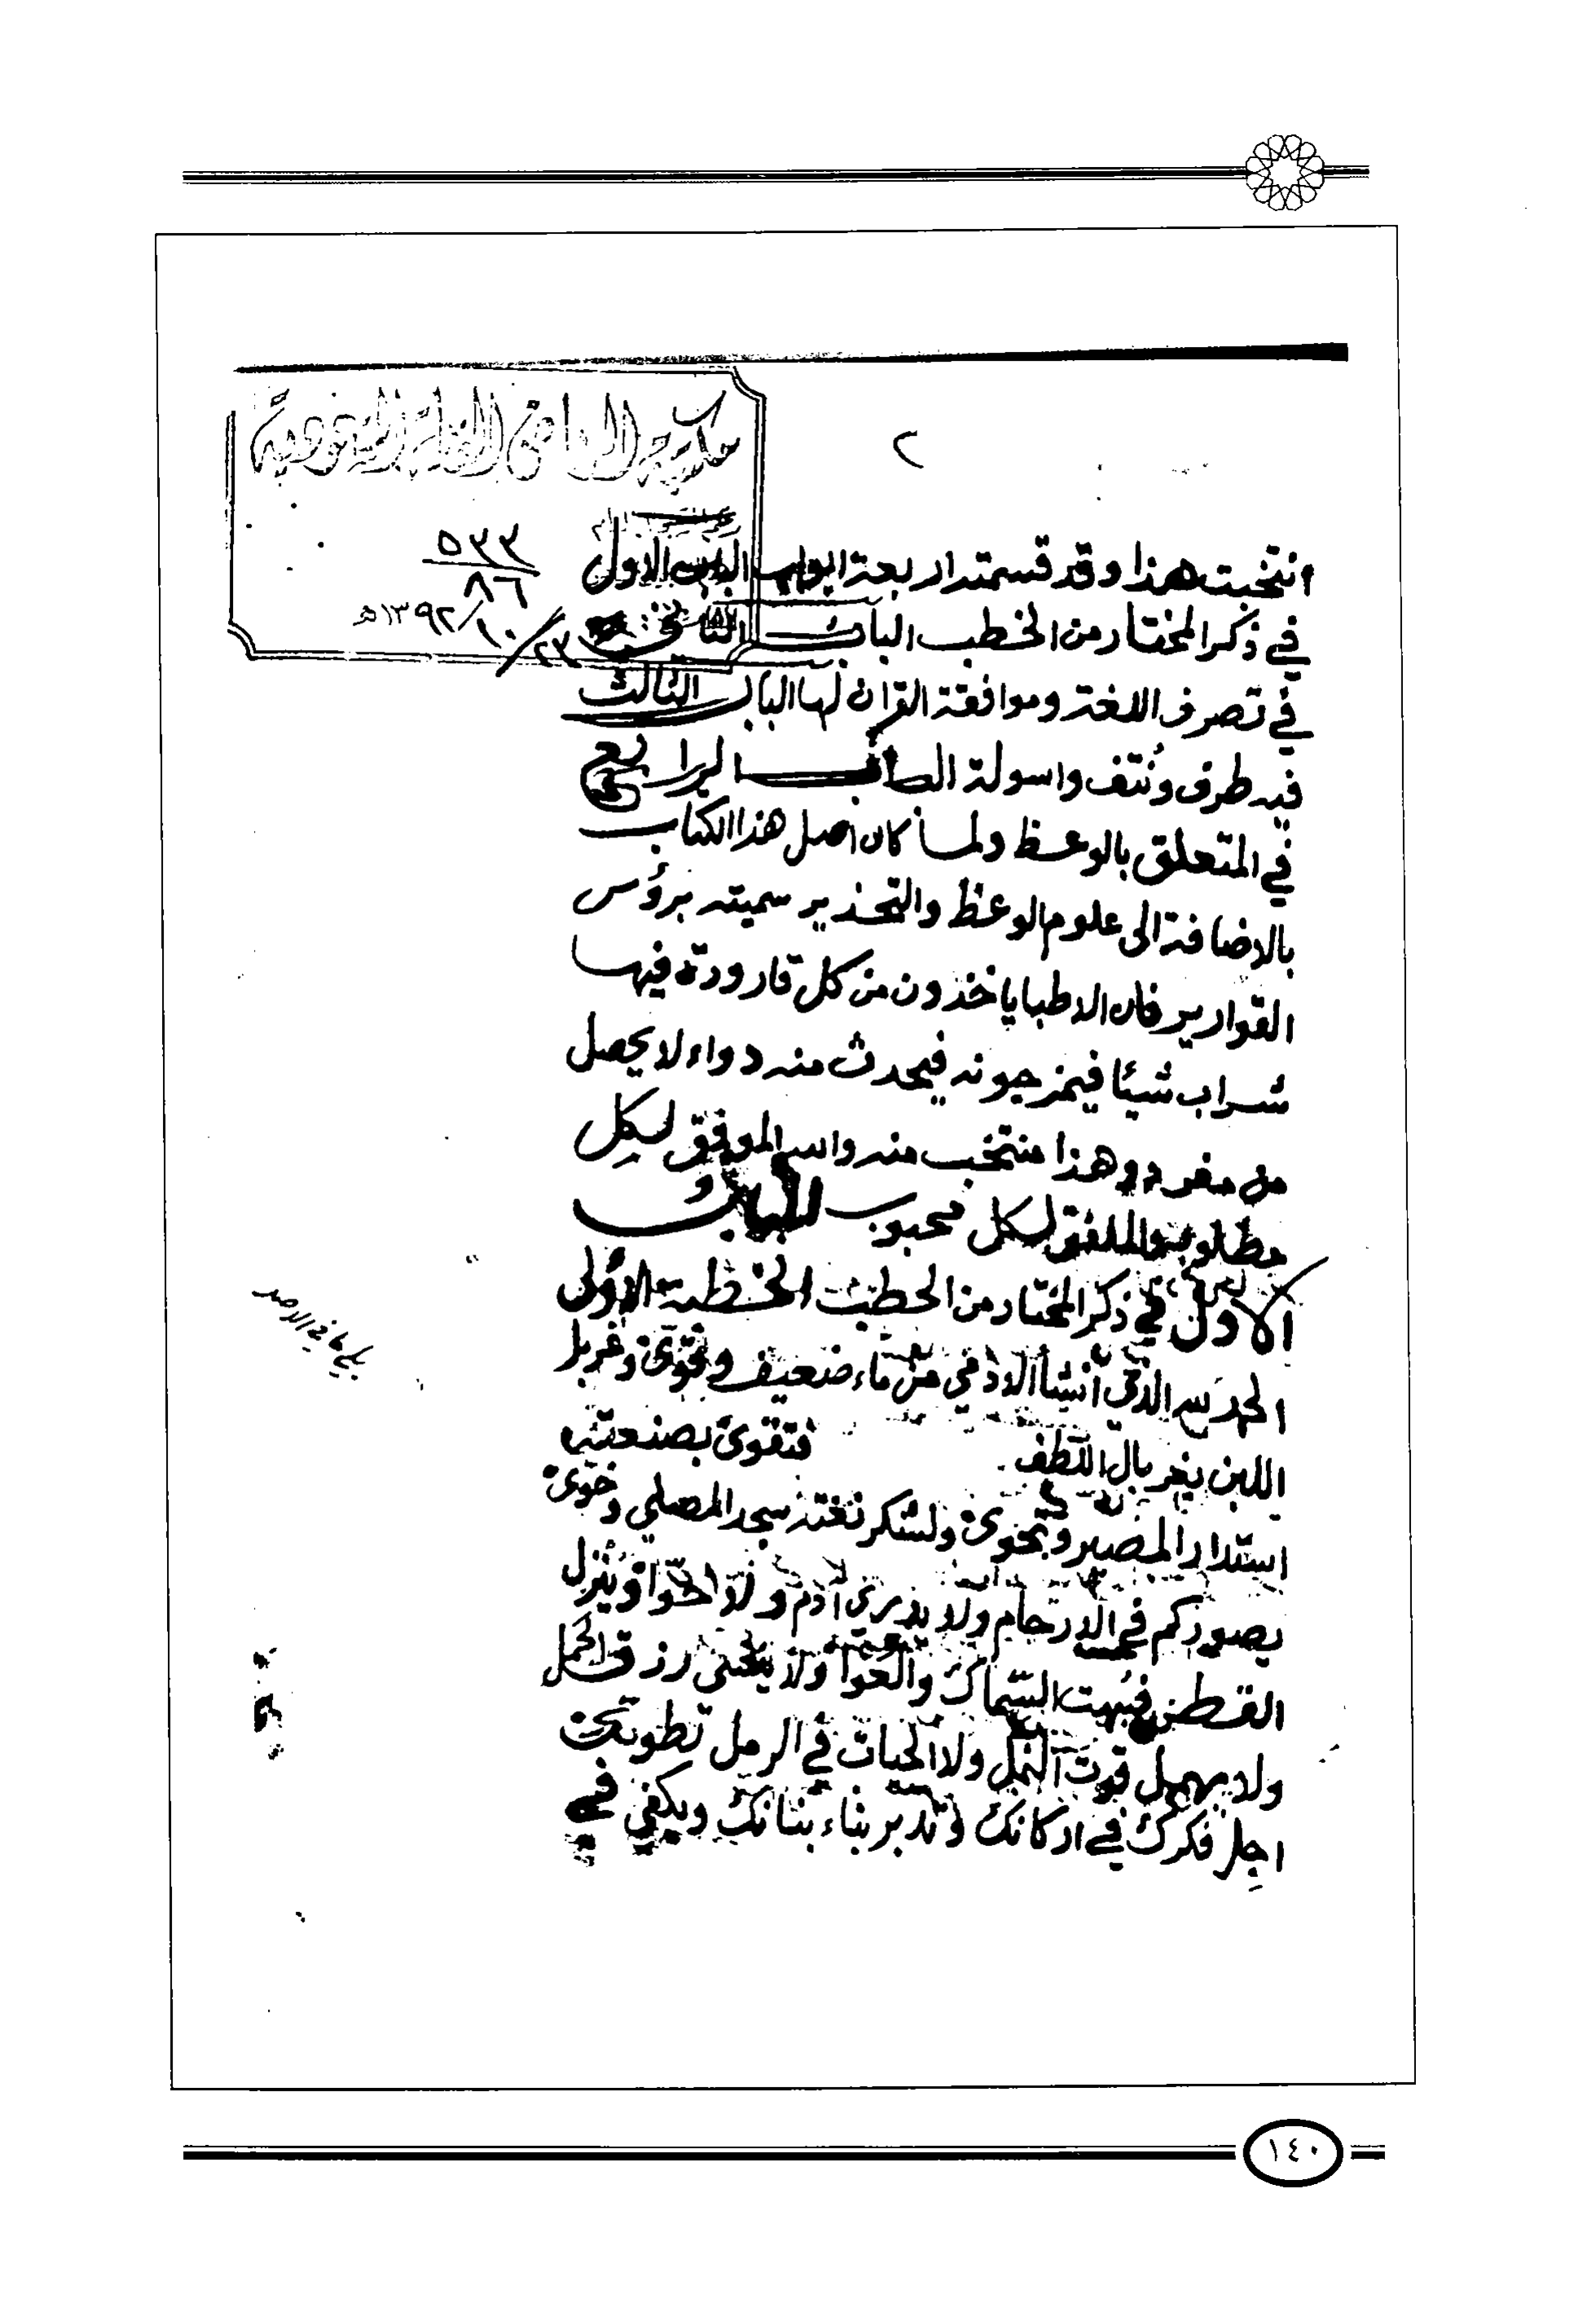 ٢
٥٣٣
٨٦
٢٣/١٠/١٣٩٢هـ
انتخبت هذا وقد قسمته اربعة ابواب الباب الاول
في ذكر المختار من الخطب الباب الثاني
في تصرف اللغة وموافقة القران لها الباب الثالث
فيه طرف ونُتف واسولة الباب الرابع
في المتعلق بالوعظ ولما كان اصل هذا الكتاب
بالاضافة الى علوم الوعظ والتحذير سميته برؤس
القوارير فان الاطبا ياخذون من كل قارورة فيها
شراب شيئا فيمزجونه فيحدث منه دواء لا يحصل
من مفرد وهذا منتخب منه والله الموفق لكل
مطلوب والملفق لكل محبوب الباب
الاول في ذكر المختار من الخطب الخطبة الأولى
الحمد لله الذي أنشأ الآدمي من ماء ضعيف وغربل
اللبن بغربال اللطف فتقوى بصنعته
استدار المصير وتحوى ولشكر نعمته سجد المصلي وخوى
يصوركم في الارحام ولا يدري آدم ولا حوا وينزل
القطر فبهت السماك والعوا ولا ينسى رزق الحمل
ولا يهمل قوت النمل ولا الحيات في الرمل تطوت
اجل فكرك في اركانك وتدبر بناء بنانك ويكفي في
١٤٠